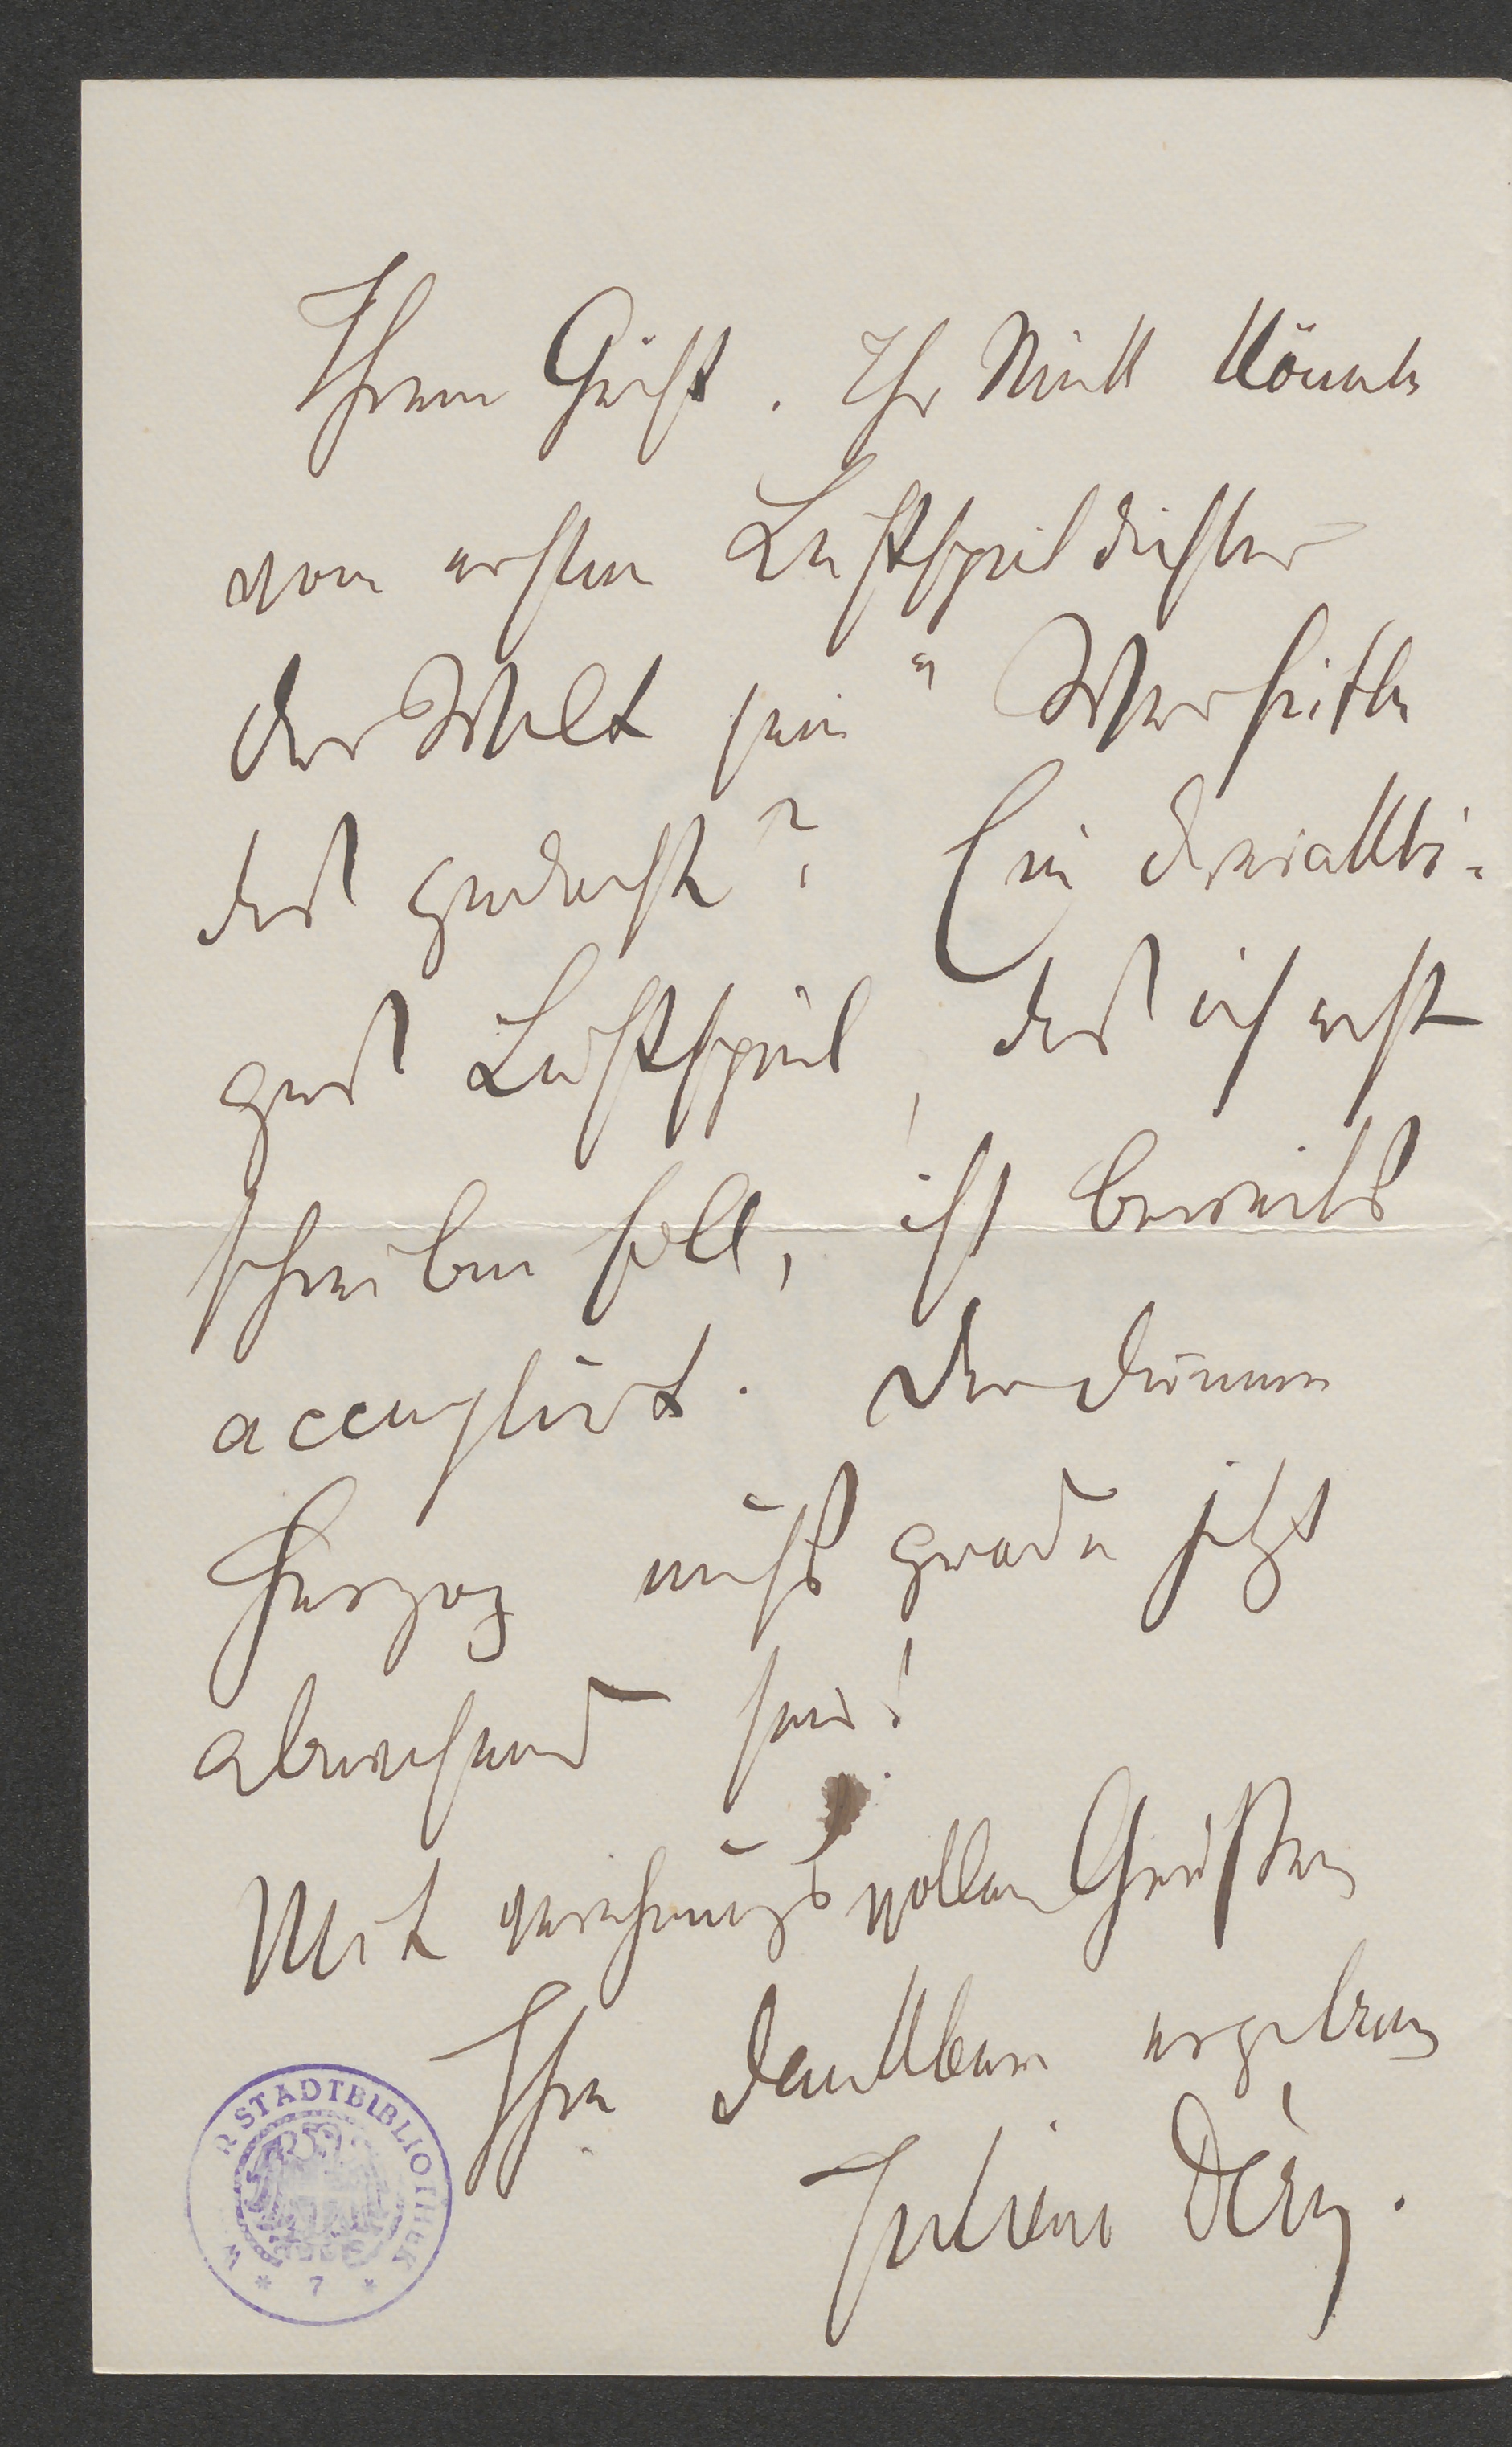 Ihrem Geist. Ihr Stück könnte
vom ersten Lustspieldichter
der Welt sein " Wer hätte
das gedacht? Ein dreiakti-
ges Lustspiel, das ich erst
schreiben soll, ist bereits
acceptirt. Der dumme
Herzog muß grade jetzt
abwesend sein!
Mit verehrungsvollen Grüßen
Ihr dankbar ergebener
Julius Déry.
R STADTBIBLIOTHEK
W
* 7 *